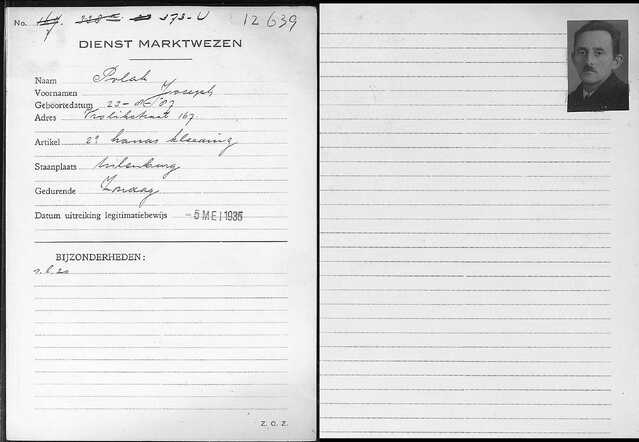 No. 373-U 12639
DIENST MARKTWEZEN
Naam Polak
Voornamen Joseph
Geboortedatum 23-
Adres Trolikstraat 167
Artikel 2e hands kleeding
Staanplaats Uilenburg
Gedurende Zondag
Datum uitreiking legitimatiebewijs -5 MEI 1936
BIJZONDERHEDEN:
Z. O. Z.